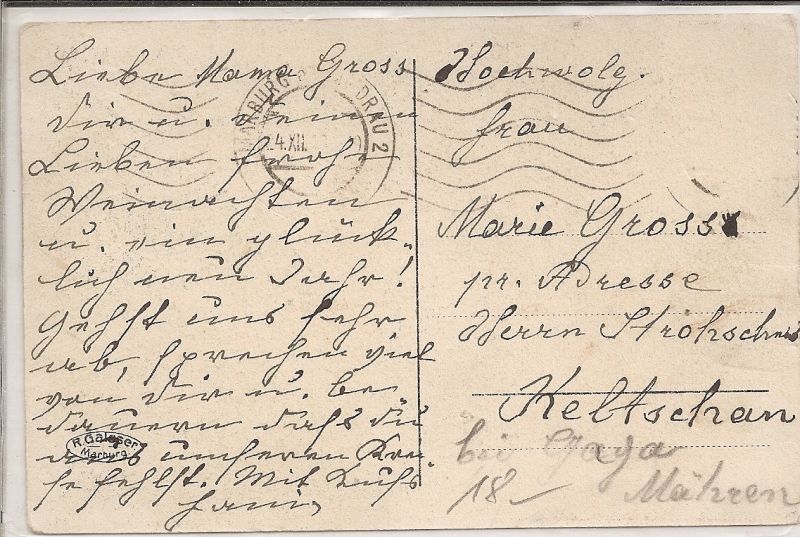 Liebe Mama Gross
Dir u. deinen
Lieben frohe
Weinachten
u. ein glück-
lich neu Jahr!
Gehst uns sehr
ab, sprechen viel
von Dir u. be
dauern dass du
aus unseren Krei
se fehlst. Mit Kuss
MARBURG DRAU 2
4.XII.
R. Gaisser
Marburg
Hochwolg.
Frau
Marie Gross
pr. Adresse
Herrn
Keltschan
bei Gaya
18- Mähren